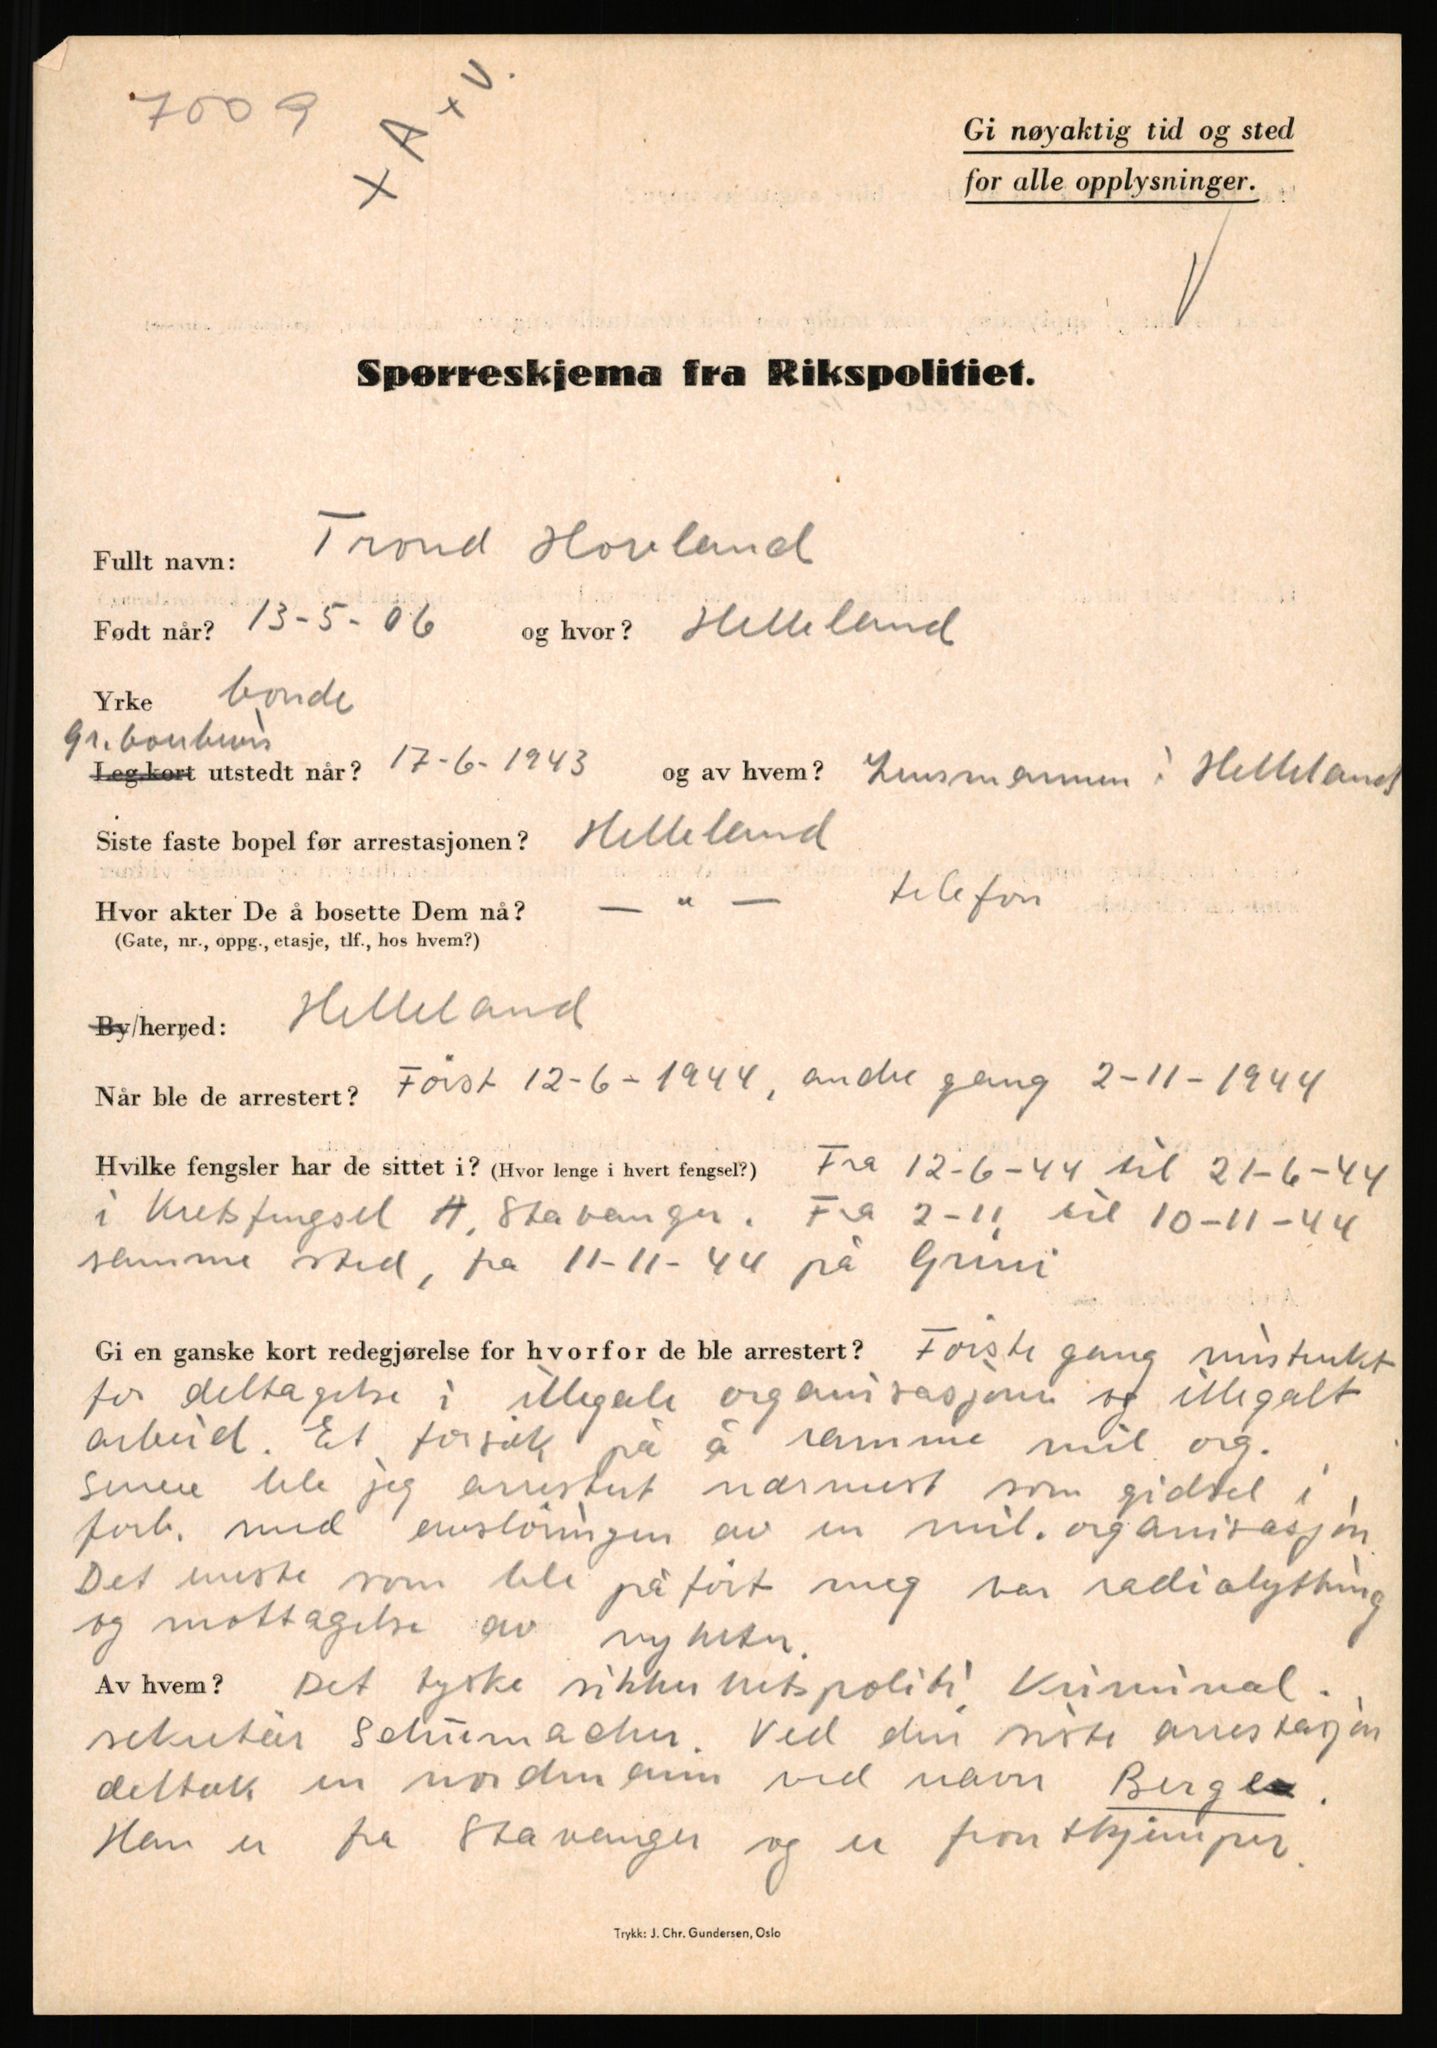 7009
x A + V.
Gi nøyaktig tid og sted
for alle opplysninger.
V
Spørreskjema fra Rikspolitiet.
Fullt navn: Trond Hovland
Født når? 13-5-06 og hvor? Helleland
Yrke bonde
Gr.boerbevis
Leg.kort utstedt når? 17-6-1943 og av hvem? Lensmannen i Helleland
Siste faste bopel før arrestasjonen? Helleland
Hvor akter De å bosette Dem nå? — " — telefon
(Gate, nr., oppg., etasje, tlf., hos hvem?)
By/herred: Helleland
Når ble de arrestert? Først 12-6-1944, andre gang 2-11-1944
Hvilke fengsler har de sittet i? (Hvor lenge i hvert fengsel?) Fra 12-6-44 til 21-6-44
i Kretsfengsel A, Stavanger. Fra 2-11 til 10-11-44
samme sted, fra 11-11-44 på Grini
Gi en ganske kort redegjørelse for hvorfor de ble arrestert? Første gang mistenkt
for deltagelse i illegale organisasjoner og illegalt
arbeid. Et forsøk på å ramme mil org.
Senere ble jeg arrestert nærmest som gidsel i
forb. med avsløringen av en mil. organisasjon.
Det eneste som ble påført meg var radiolyttning
og mottagelse av nyheter.
Av hvem? Det tyske sikkerhetspoliti, Kriminal-
sekretær Schümacher. Ved den siste arrestasjon
deltok en nordmann ved navn Berge.
Han er fra Stavanger og er frontkjemper.
Trykk: J. Chr. Gundersen, Oslo